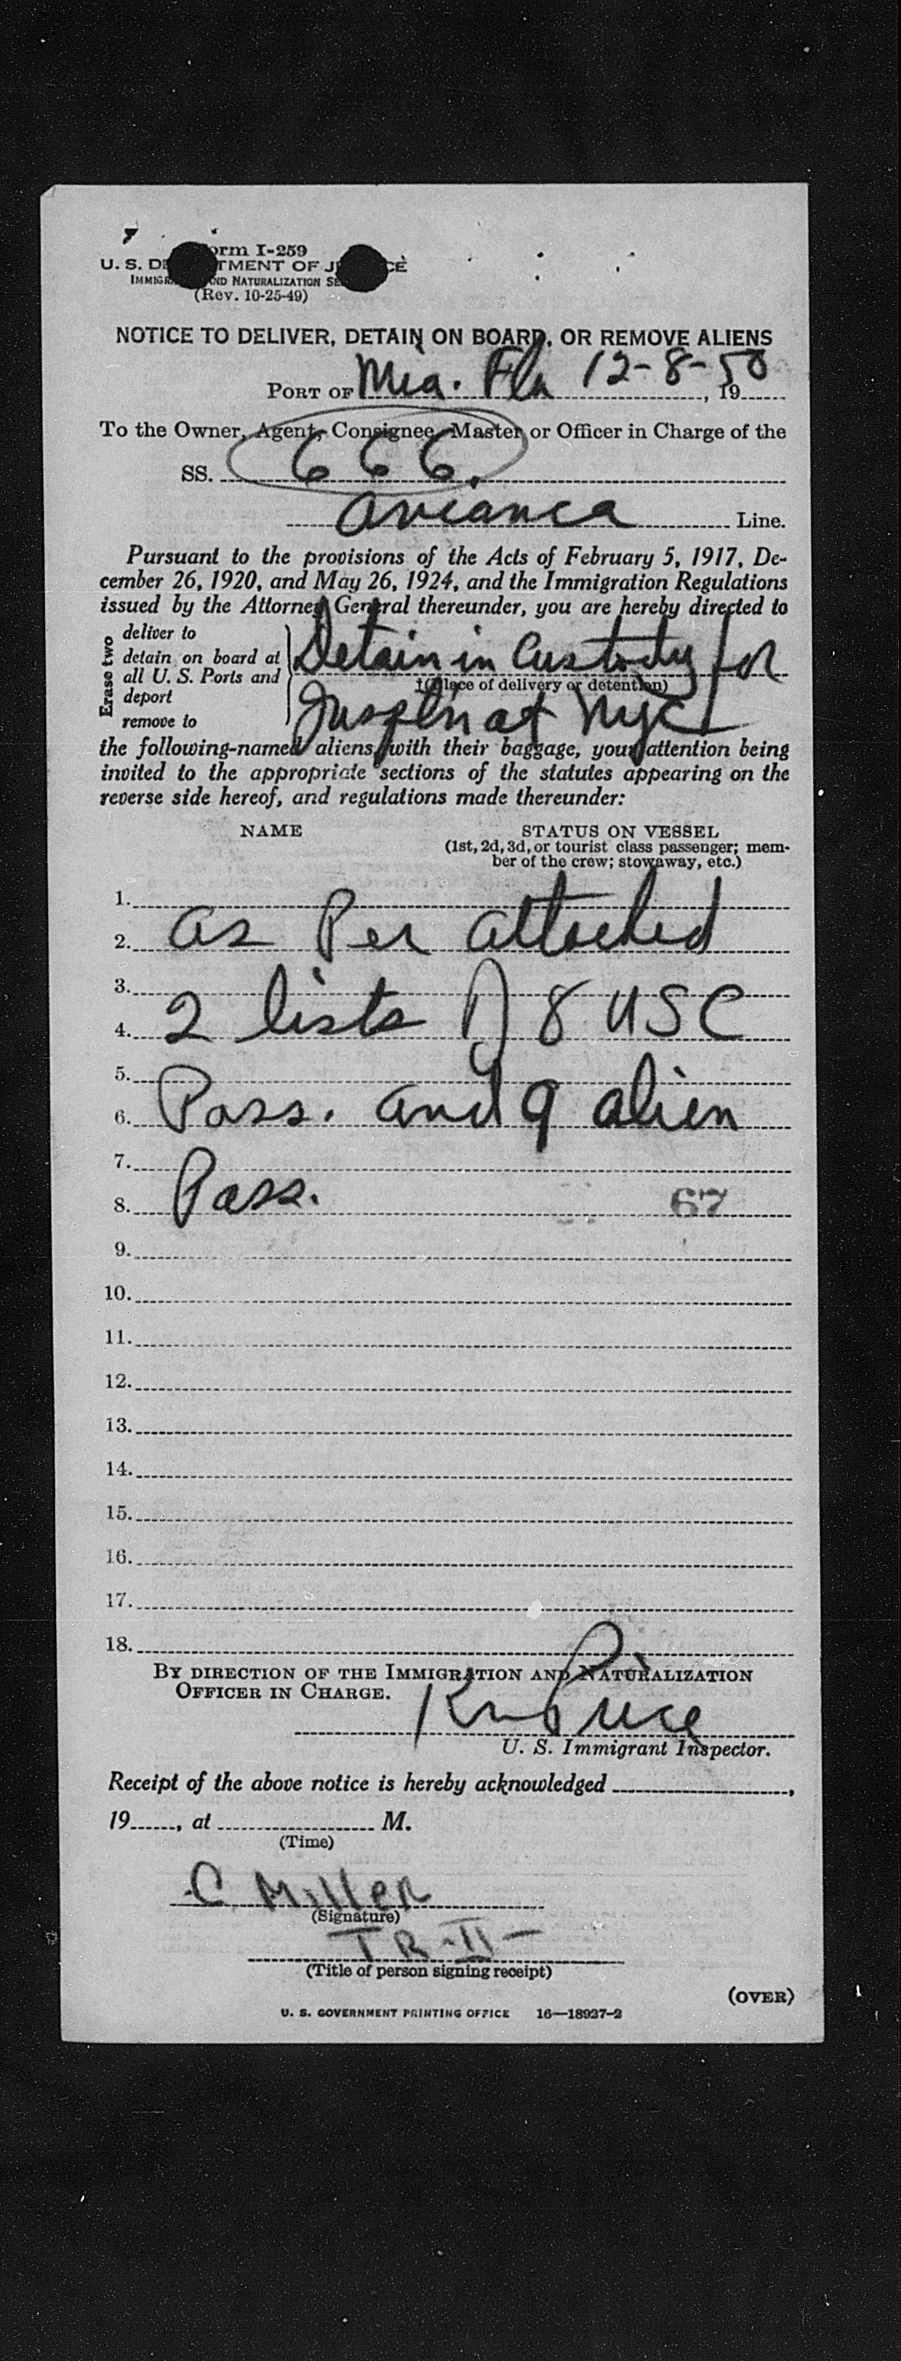 Form I-259
U. S. DEPARTMENT OF JUSTICE
IMMIGRATION AND NATURALIZATION SERVICE
(Rev. 10-25-49)
NOTICE TO DELIVER, DETAIN ON BOARD, OR REMOVE ALIENS
PORT OF Mia. Fla 12-8-50, 19
To the Owner, Agent, Consignee, Master or Officer in Charge of the
SS. 666.
Avianca Line.
Pursuant to the provisions of the Acts of February 5, 1917, De-
cember 26, 1920, and May 26, 1924, and the Immigration Regulations
issued by the Attorney General thereunder, you are hereby directed to
Erase two
deliver to
detain on board at
all U. S. Ports and
deport
remove to
Detain in Custody for
†(Place of delivery or detention)
Inspln at NYC
the following-named aliens, with their baggage, your attention being
invited to the appropriate sections of the statutes appearing on the
reverse side hereof, and regulations made thereunder:
NAME STATUS ON VESSEL
(1st, 2d, 3d, or tourist class passenger; mem-
ber of the crew; stowaway, etc.)
1.
2. as Per attached
3.
4. 2 lists of 8 USC
5.
6. Pass. and 9 alien
7.
8. Pass. 67
9.
10.
11.
12.
13.
14.
15.
16.
17.
18.
BY DIRECTION OF THE IMMIGRATION AND NATURALIZATION
OFFICER IN CHARGE.
Price
U. S. Immigrant Inspector.
Receipt of the above notice is hereby acknowledged ,
19 , at M.
(Time)
C Miller
(Signature)
TR-II-
(Title of person signing receipt)
(OVER)
U. S. GOVERNMENT PRINTING OFFICE 16—18927-2